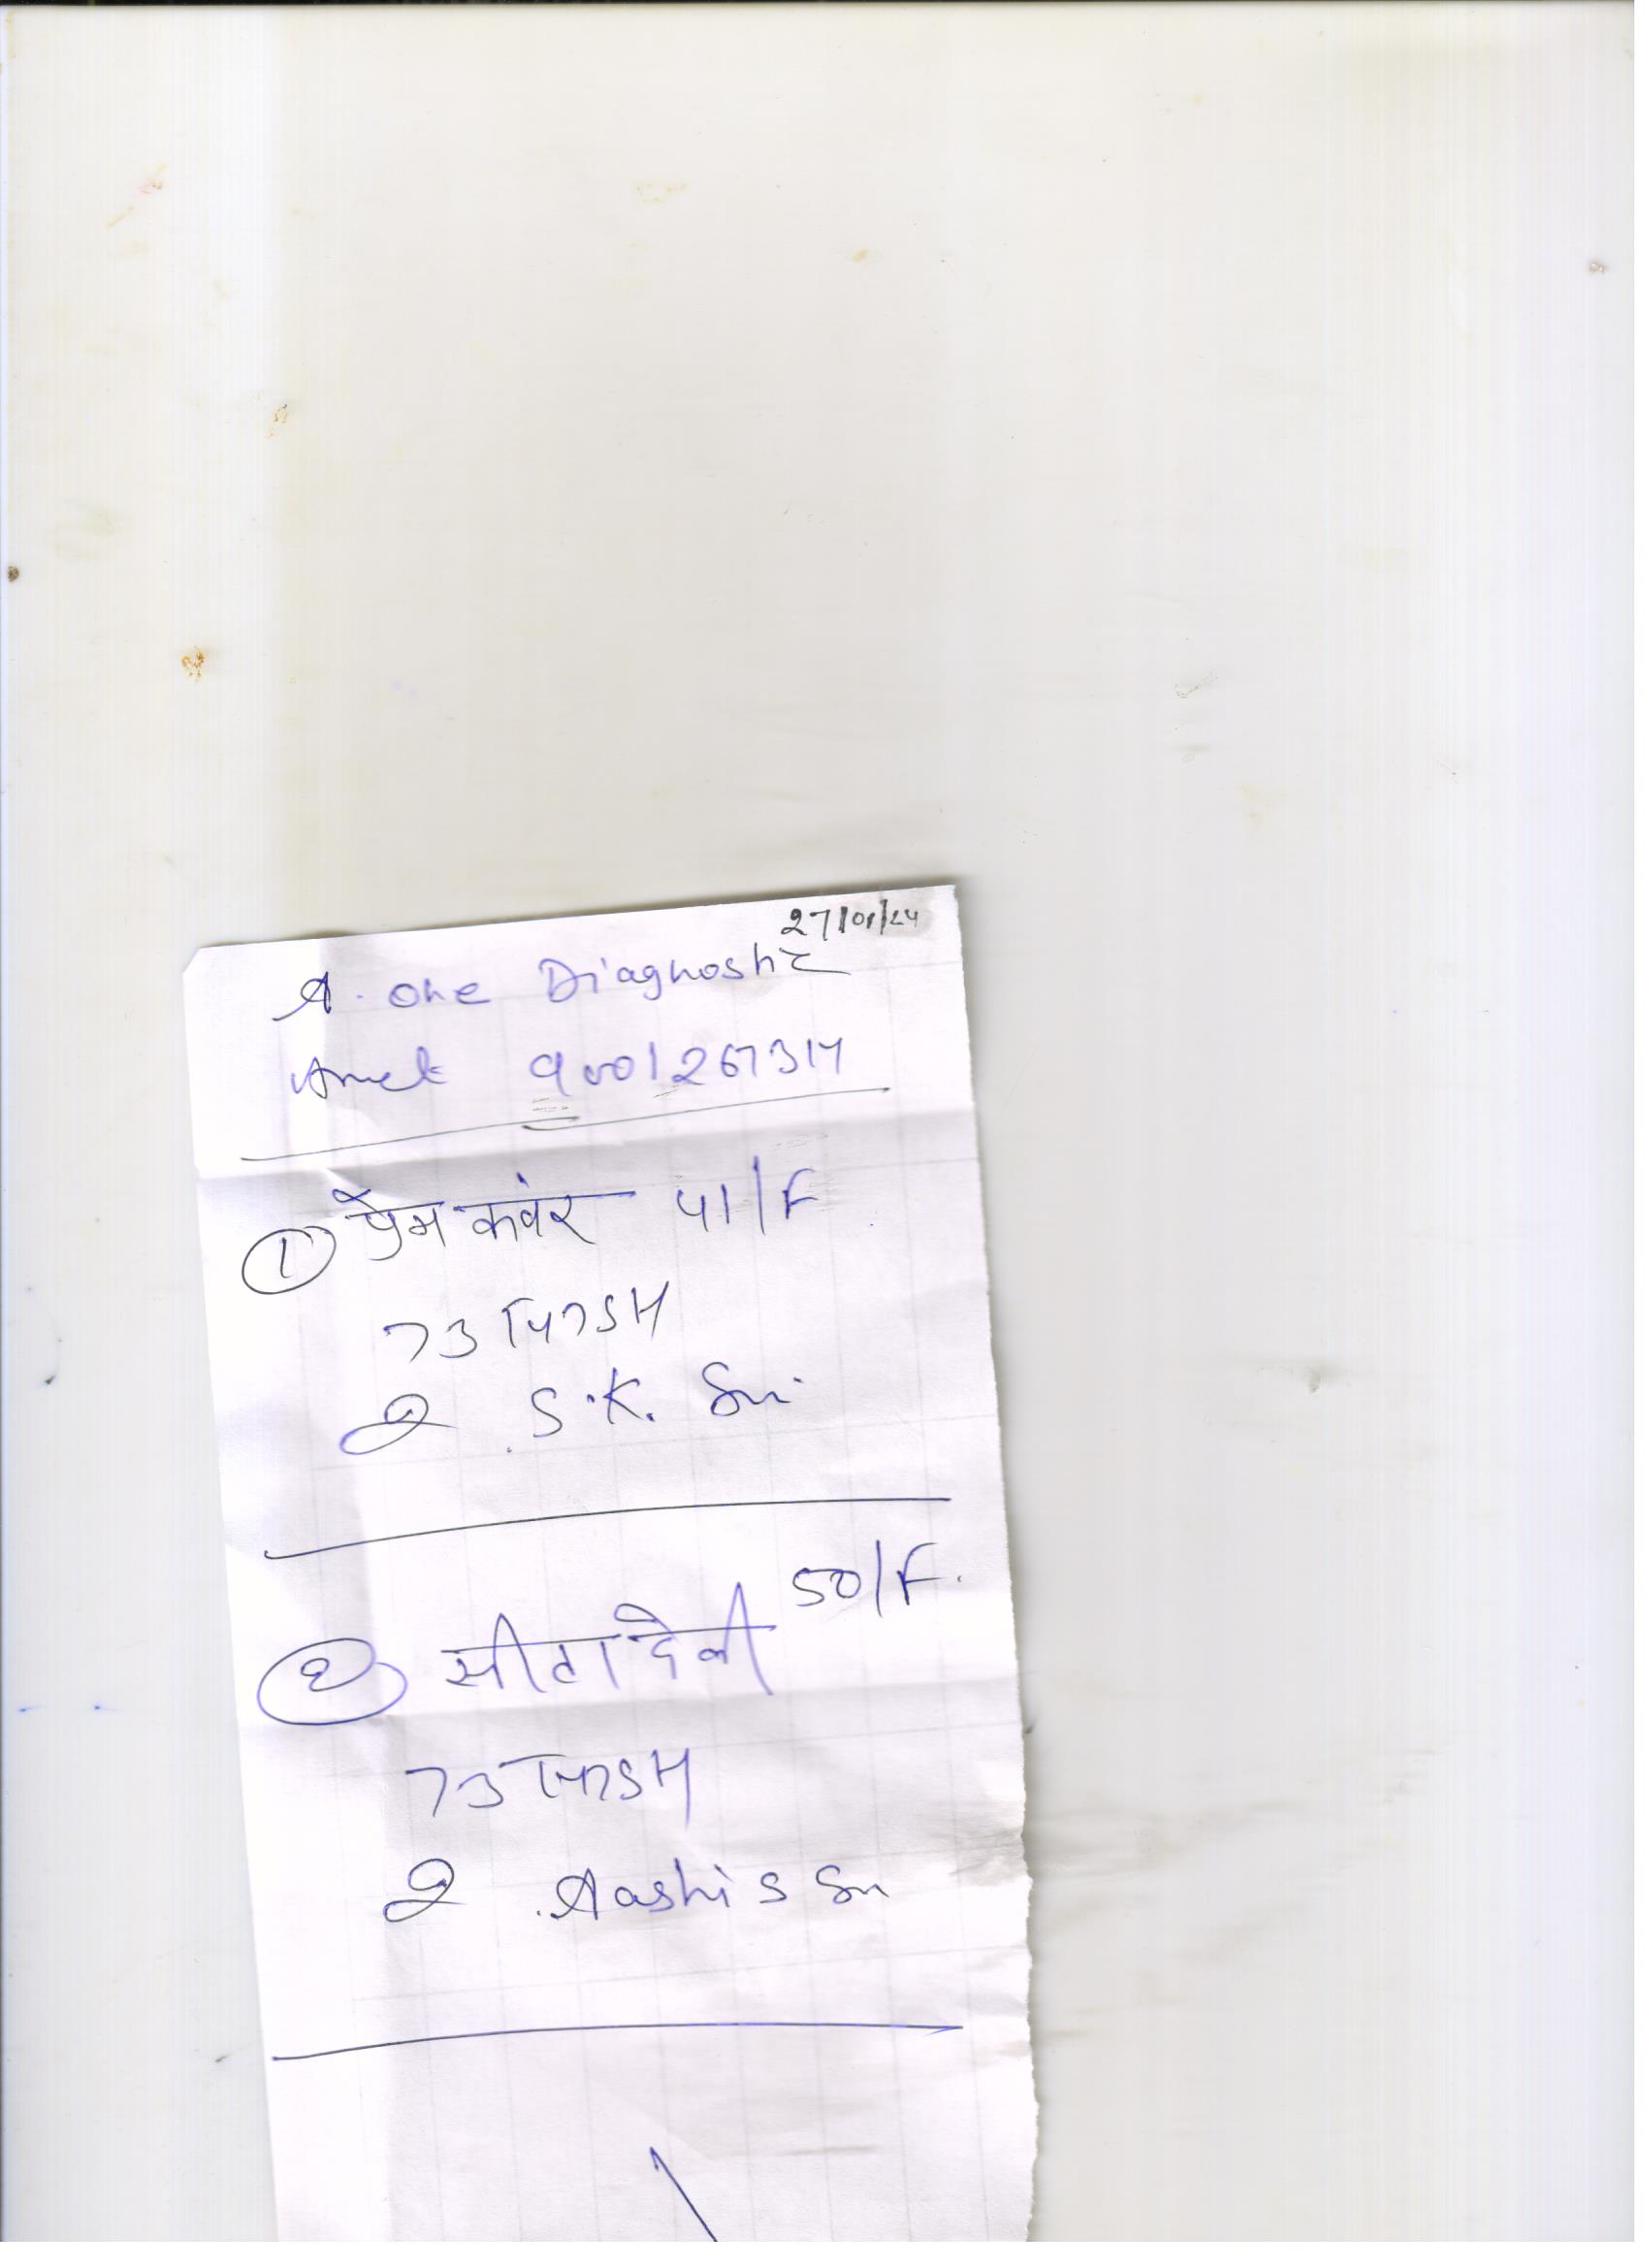 27/01/24
A. One Diagnostic
9001267314
① प्रेम कवंर 41/F
T3T4TSH
S.K. Sir
② सीता देवी 50/F.
T3T4TSH
Aashis Sir